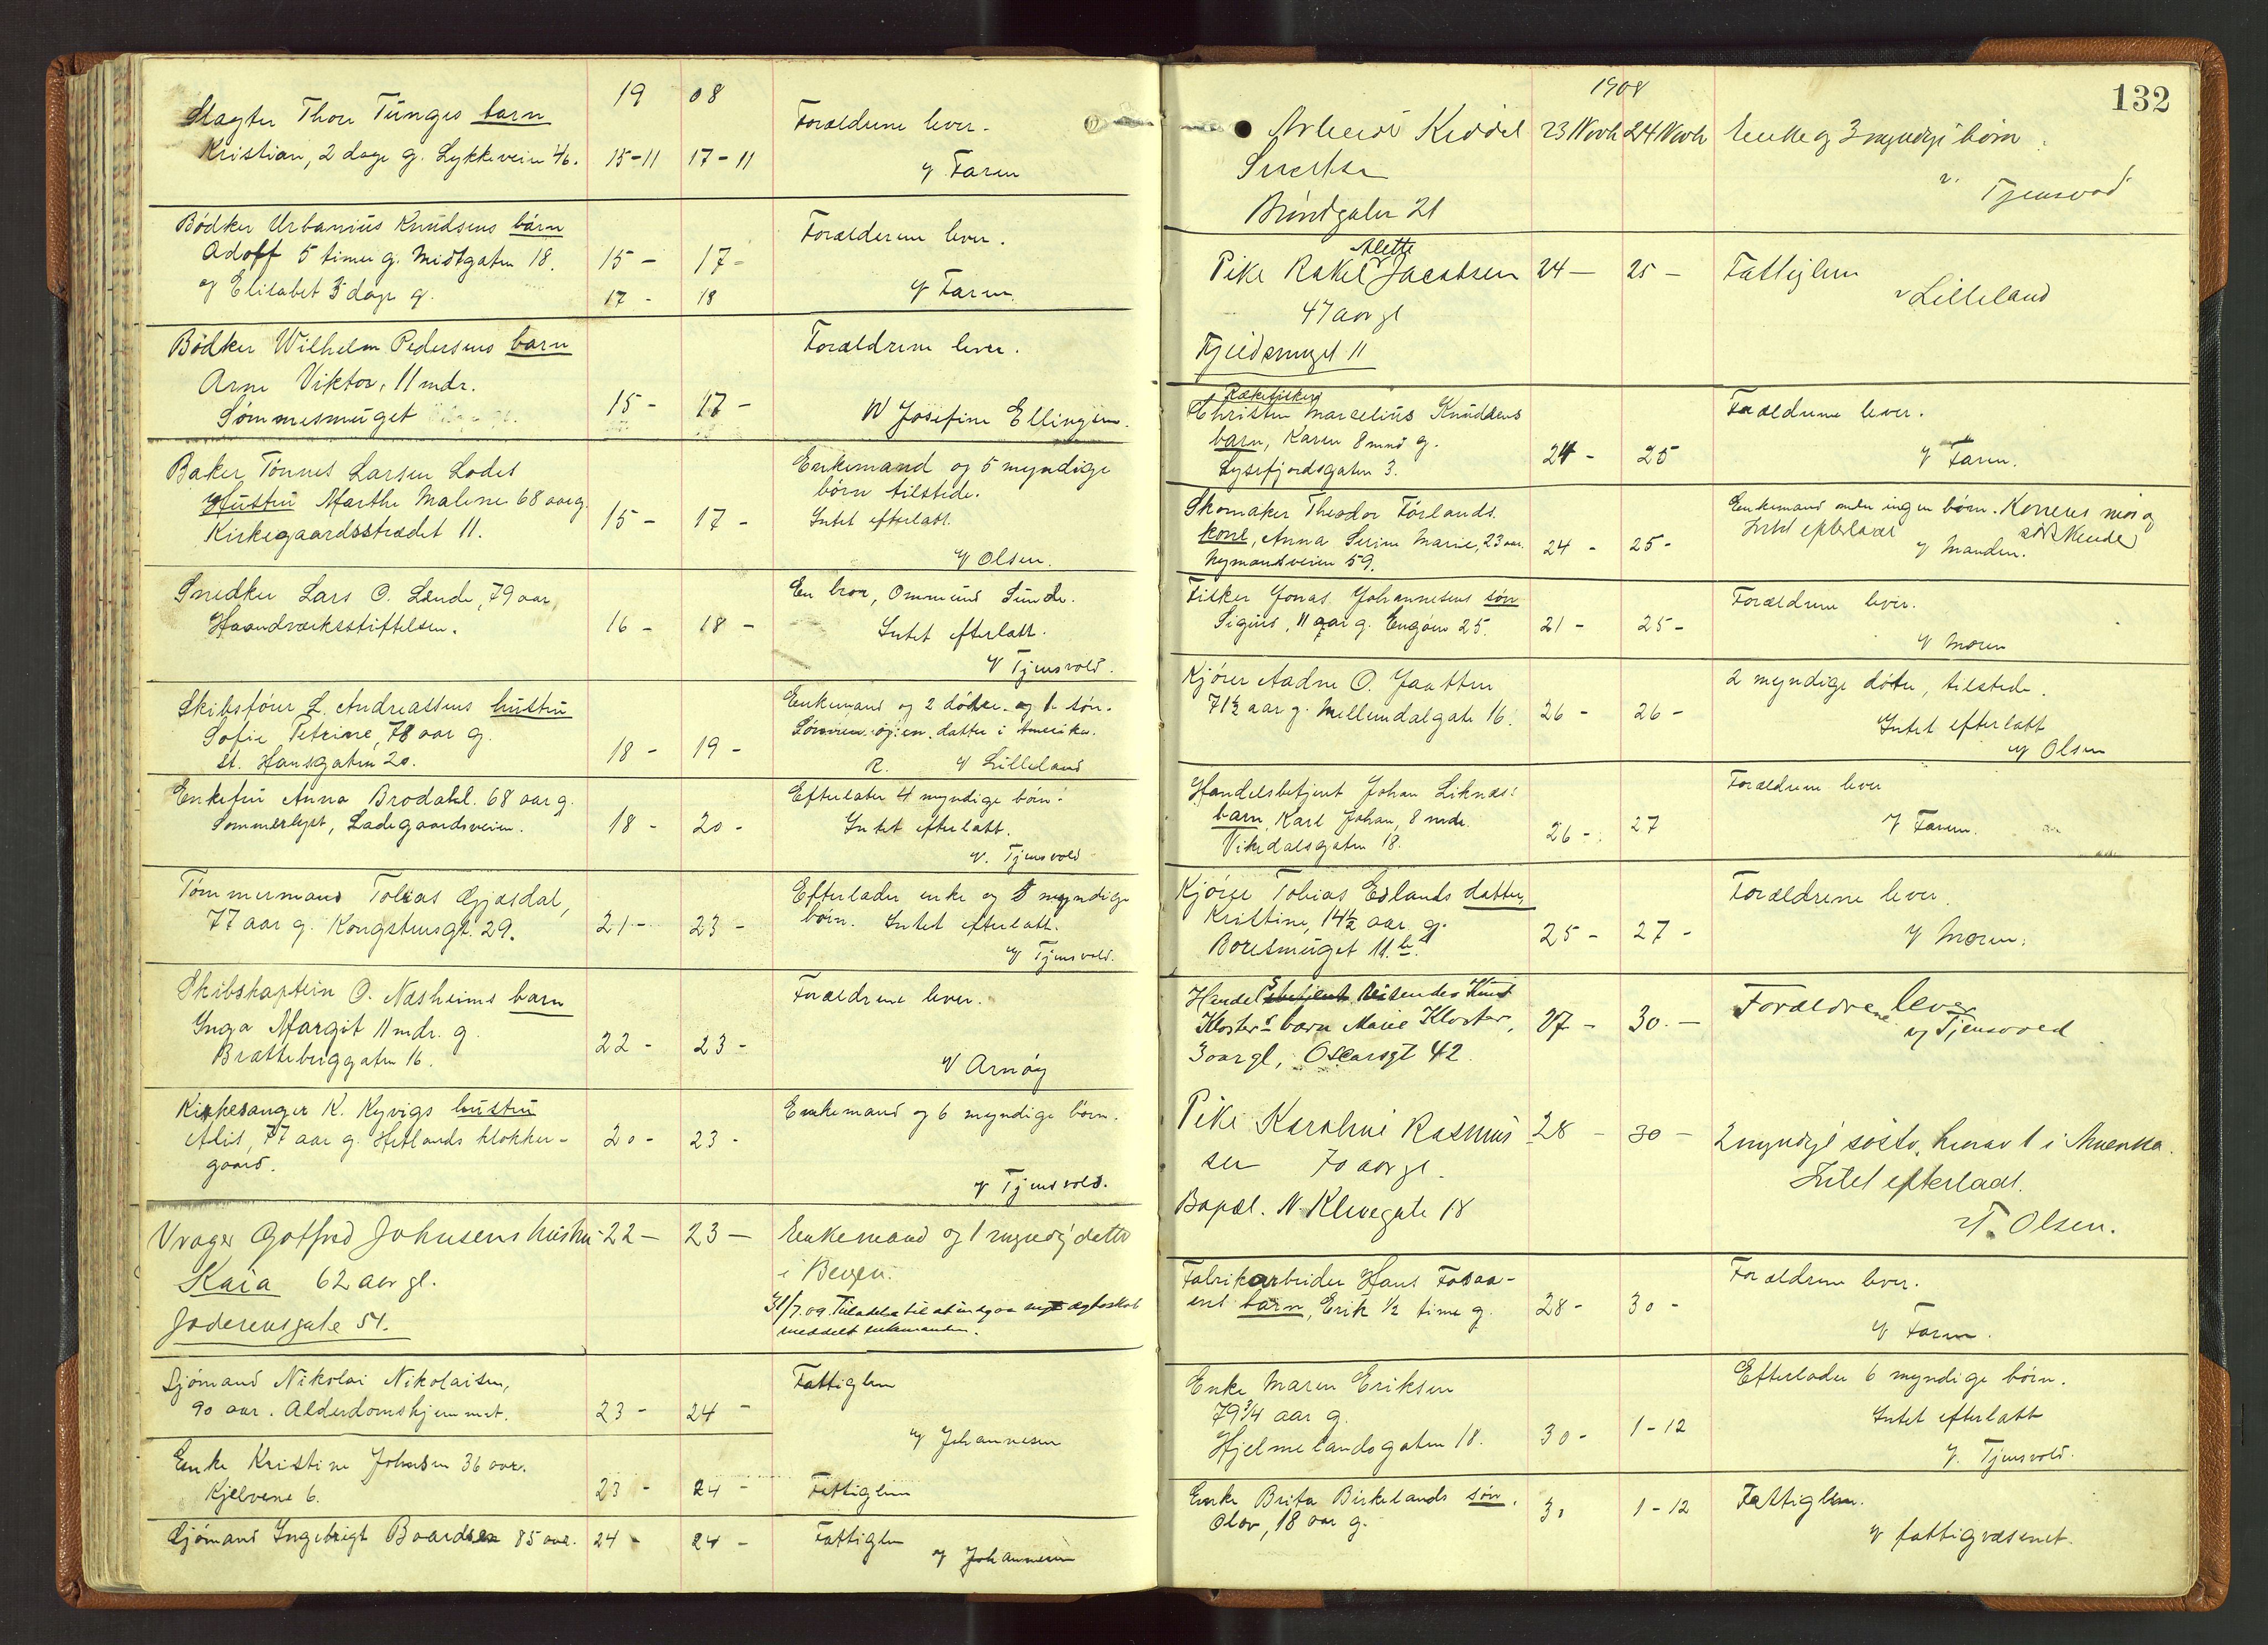 19 08
Slagter Thor Tunges barn
Kristian, 2 dage g. Lykkeveien 46. 15-11 17-11
Forældrene lever.
v Faren
Bødker Urbanius Knudsens børn
Adolf 5 timer g. Midtgaten 18. 15 - 17 -
og Elisabet 3 dage g. 17 - 18
Forælderene lever.
v Faren.
Bødker Wilhelm Pedersens barn
Arne Viktor, 11 mdr.
Sømmesmuget 15 - 17 -
Forældrene lever.
v Josefine Ellingsen.
Baker Tønnes Larsen Lodes
Hustru Marthe Malene 68 aar g
Kirkegaardsstrædet 11. 15 - 17 -
Enkemand og 5 myndige
børn tilstede.
Intet efterlatt.
v Olsen.
Snedker Lars O. Lende, 79 aar,
Haandværksstiftelsen. 16 - 18 -
En bror, Ommund Sunde.
Intet efterlatt.
v Tjensvold.
Skibsfører L. Andreassens hustru
Sofie Petrine, 78 aar g.
St. Hansgaten 20. 18 - 19 -
Enkemand og 2 døtre og 1 søn.
Sønnen og en datter i Amerika.
R. v Lilleland
Enkefru Anna Brodahl. 68 aar g.
Sommerlyst, Ladegaardsveien. 18 - 20 -
Efterlater 4 myndige børn.
Intet efterlatt.
v. Tjensvold
Tømmermand Tobias Gjesdal,
77 aar g. Kongstensgt. 29. 21 - 23 -
Efterlader enke og 5 myndige
børn. Intet efterlatt.
v Tjensvold.
Skibskaptein O. Næsheims barn
Inga Margit 11 mdr. g.
Bratteberggaten 16. 22 - 23 -
Forældrene lever.
v Arnøy
Kirkesanger K. Kyvigs hustru
Alis, 77 aar g. Hetlands klokker-
gaard. 20 - 23 -
Enkemand og 6 myndige børn.
v Tjensvold.
Vrager Gotfred Johnsens hustru 22 - 23 -
Kaia 62 aar gl.
Jæderensgate 51.
Enkemand og 1 myndig datter
i Bergen.
31/7.09. Tilladelse til at indgaa nyt ægteskab
meddelt enkemanden.
Sjømand Nikolai Nikolaisen,
90 aar. Alderdomshjemmet. 23 - 24 -
Fattiglem
v Johannesen
Enke Kristine Johnsen 36 aar.
Kjelvene 6. 23 - 24 -
Fattiglem
Sjømand Ingebrigt Baardsen 85 aar. 24 - 24 -
Fattiglem
v Johannesen
132
1908
Arbeidr Kiddel 23 Novb 24 Novb
Sivertsen
Brundgaten 21
Enke og 3 myndige børn.
v. Tjensvod
Alette
Pike Rakel Jacobsen 24 - 25 -
47 aar gl
Fjeldsmuget 11
Fattiglem
v Lilleland
Rækefisker
Christen Marcelius Knudsens
barn, Karen 8 mnd g.
Lysefjordsgaten 3. 24 - 25
Forældrene lever.
v Faren.
Skomaker Theodor Førlands
kone, Anna Serine Marie, 23 aar.
Nymandsveien 59. 24 - 25 -
Enkemand men ingen børn. Konens mor og
søskende
Intet efterladt
v Manden.
Fisker Jonas Johannesens søn
Sigurd, 11 aar g. Engøen 25. 21 - 25 -
Forældrene lever.
v Moren
Kjører Aadne O. Jaatten
71½ aar g. Møllendalgate 16. 26 - 26 -
2 myndige døtre, tilstede.
Intet efterlatt
v Olsen
Handelsbetjent Johan Liknæs'
barn, Karl Johan, 8 mdr.
Vikedalsgaten 18. 26 - 27
Forældrene lever
v Faren.
Kjører Tobias Edlands datter,
Kristine, 14½ aar g.
Boresmuget 11.b. 25 - 27 -
Forældrene lever.
v Moren.
Handelsbetjent Reisendes Knud
Klosters barn Marie Kloster, 27 - 30 -
3 aar gl, Oscarsgt 42.
Forældrene lever
v Tjensvold
Pike Karoline Rasmus 28 - 30 -
sen 70 aar gl.
Bopæl. N. Klevegate 18
2 myndige søstr, herav 1 i Amerika.
Intet efterladt.
v. Olsen.
Fabrikarbeider Hans Fosaa-
ens barn, Erik ½ time g. 28 - 30 -
Forældrene lever.
v Faren.
Enke Maren Eriksen
79¾ aar g.
Hjelmelandsgaten 18. 30 - 1-12
Efterlader 6 myndige børn.
Intet efterlatt
v. Tjensvold.
Enke Brita Birkelands søn,
Olav, 18 aar g. 30 1-12
Fattiglem.
v fattigvæsenet.